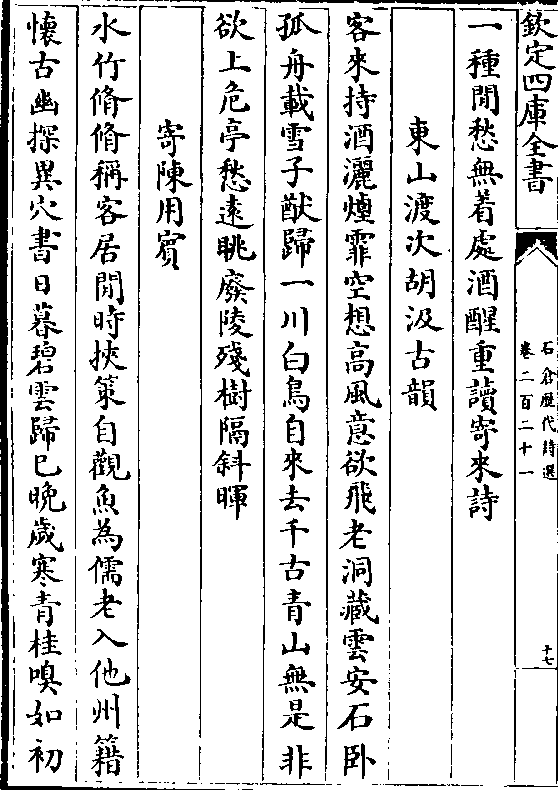 欽定四庫全書
石倉歷代詩選
卷二百二十一
十七
一種閒愁無着處酒醒重讀寄來詩
東山渡次胡汲古韻
客來持酒灑煙霏空想高風意欲飛老洞藏雲安石卧
孤舟載雪子猷歸一川白鳥自來去千古青山無是非
欲上危亭愁遠眺廢陵殘樹隔斜暉
寄陳用賓
水竹翛翛稱客居閒時挾策自觀魚為儒老入他州籍
懷古幽探異穴書日暮碧雲歸已晚歲寒青桂嗅如初